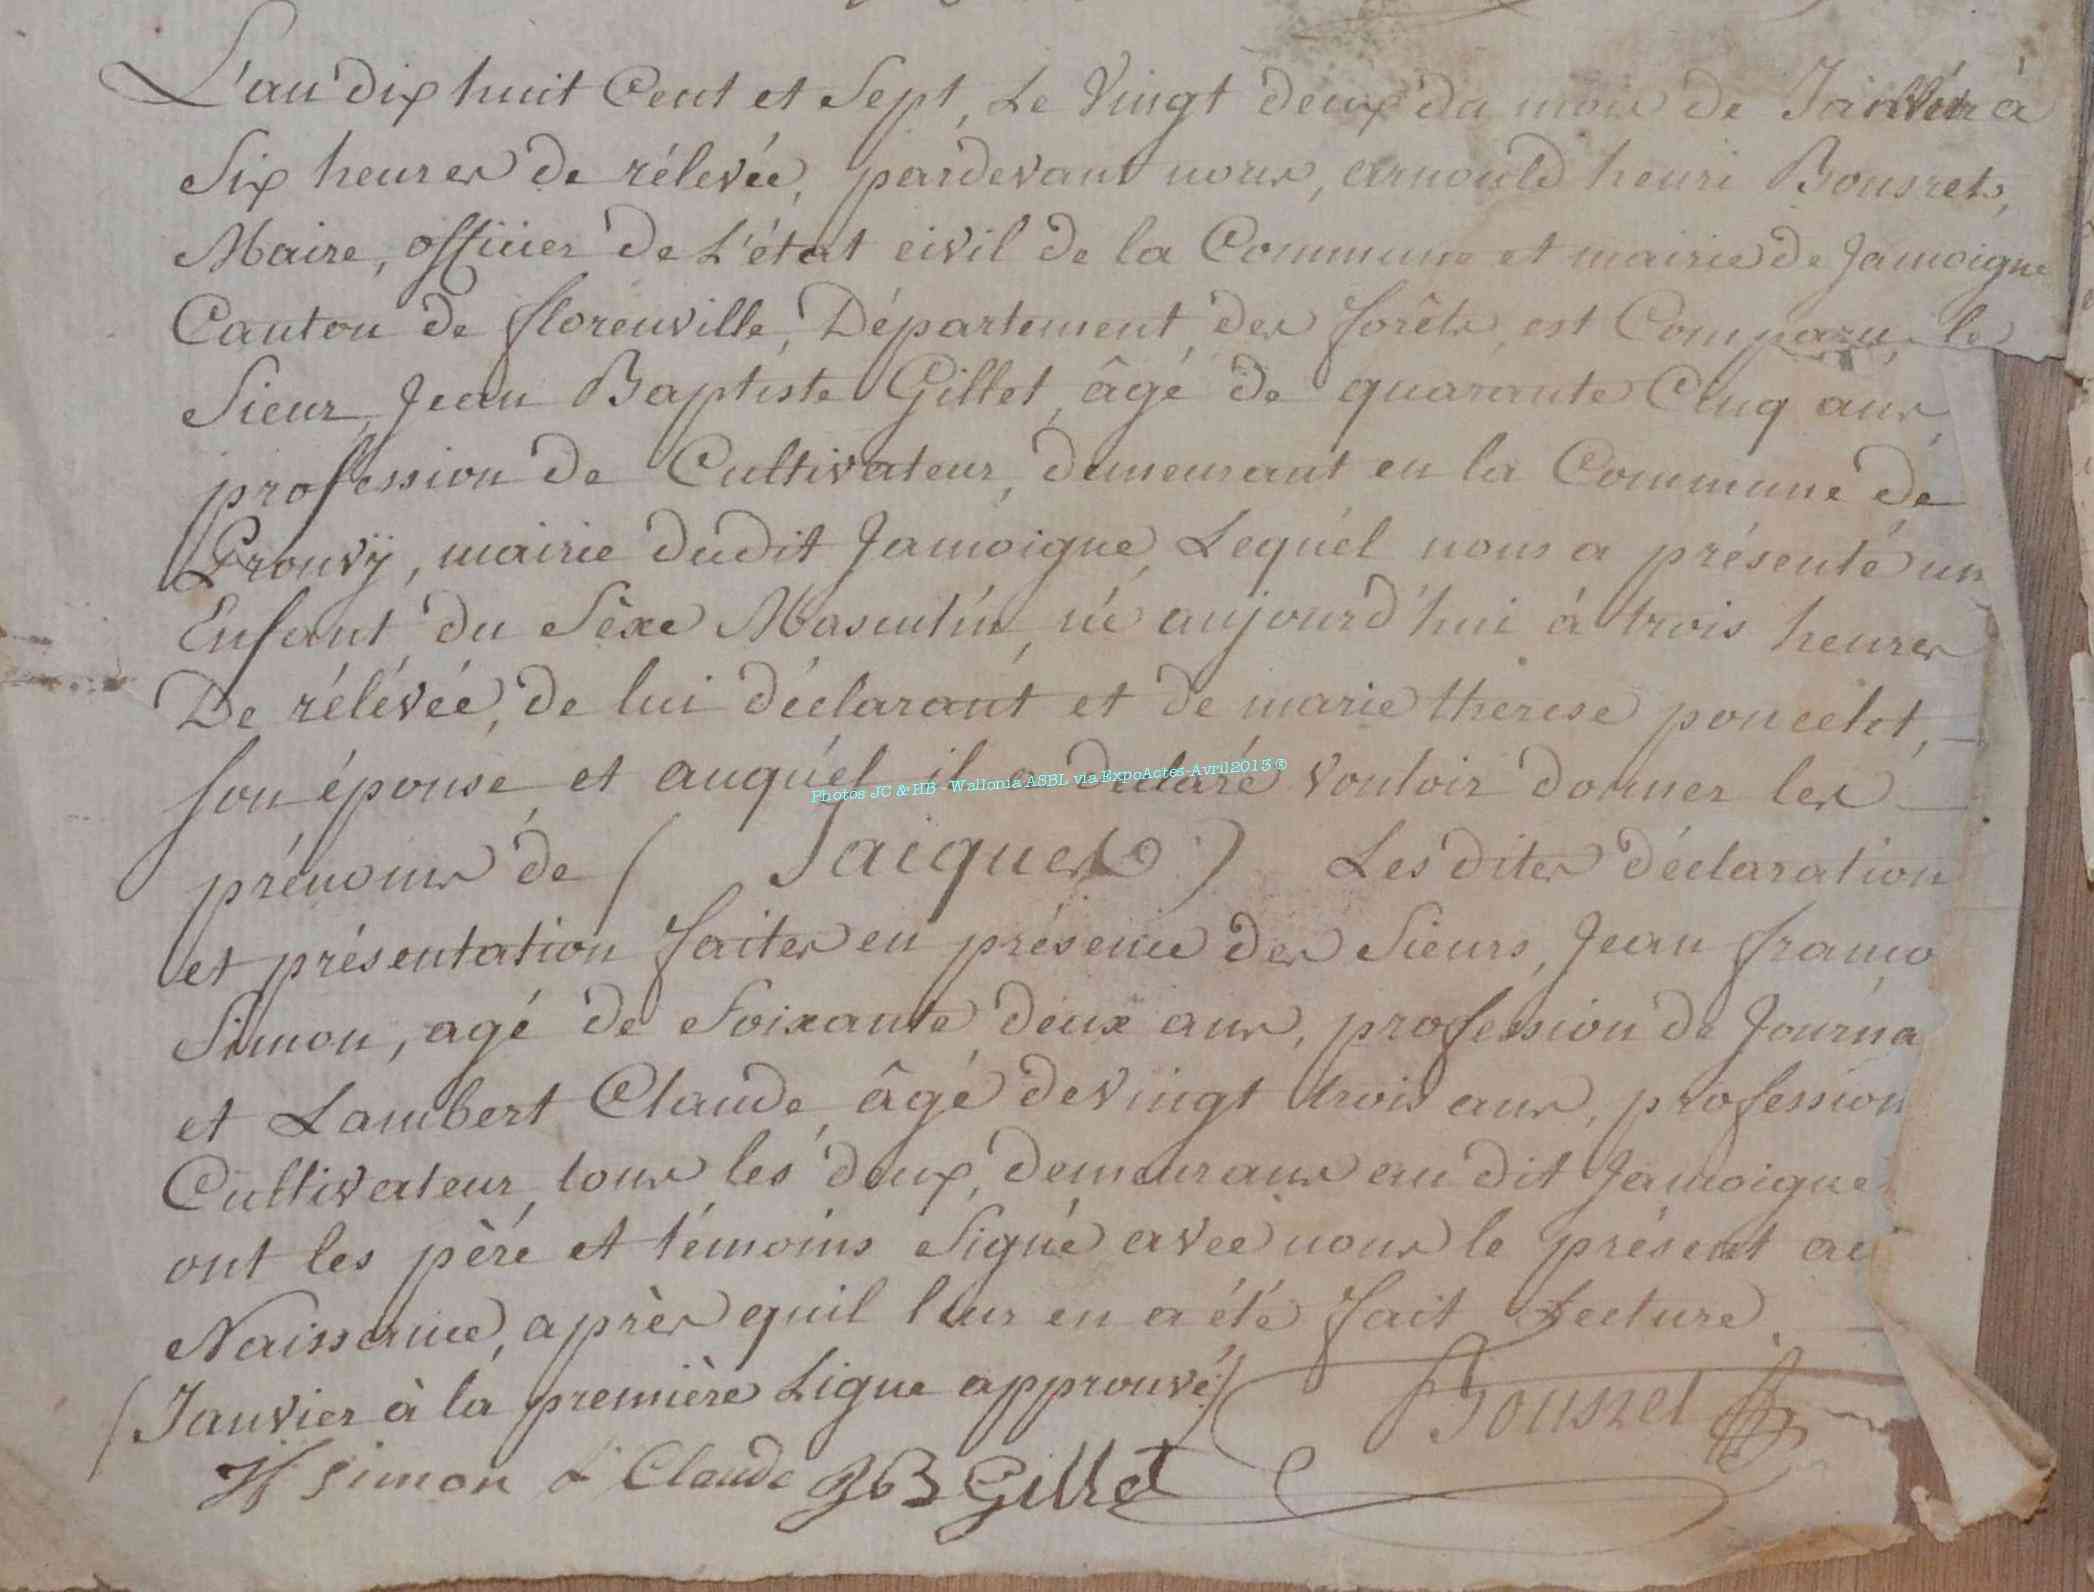 L'an dix huit Cent et Sept, Le Vingt deux du mois de Janvier à
Six heures de rélevée, pardevant nous, arnould henri Bousrets,
Maire, officier de L'état civil de la Commune et mairie de Jamoigne
Canton de florenville, Département des forêts, est Comparu, le
Sieur, Jean Baptiste Gillet, âgé de quarante Cinq ans,
profession de Cultivateur, demeurant en la Commune de
Prouvÿ, mairie dudit Jamoigne, Lequel nous a présenté un
Enfant du Sèxe Masculin, né aujourd'hui à trois heures
De rélévée, de lui déclarant et de marie therese poncelet,
son épouse, et auquel il a Déclaré vouloir donner les
Photos JC & HB - Wallonia ASBL via ExpoActes-Avril2013 ®
prénoms de ( Jaiques ) Les dites déclaration
et présentation faites en présence des Sieurs, Jean franço
Simon, agé de Soixante deux ans, profession de Journa
et Lambert Claude, âgé de vingt trois ans, profession
Cultivateur, tous les deux, demeurans au dit Jamoigne
ont les père et témoins Signé avec nous le présent ac
Naissance, après quil leur en a été fait Lecture
(Janvier à la première Ligne approuvé)
Bousret
JF Simon L Claude JB Gillet